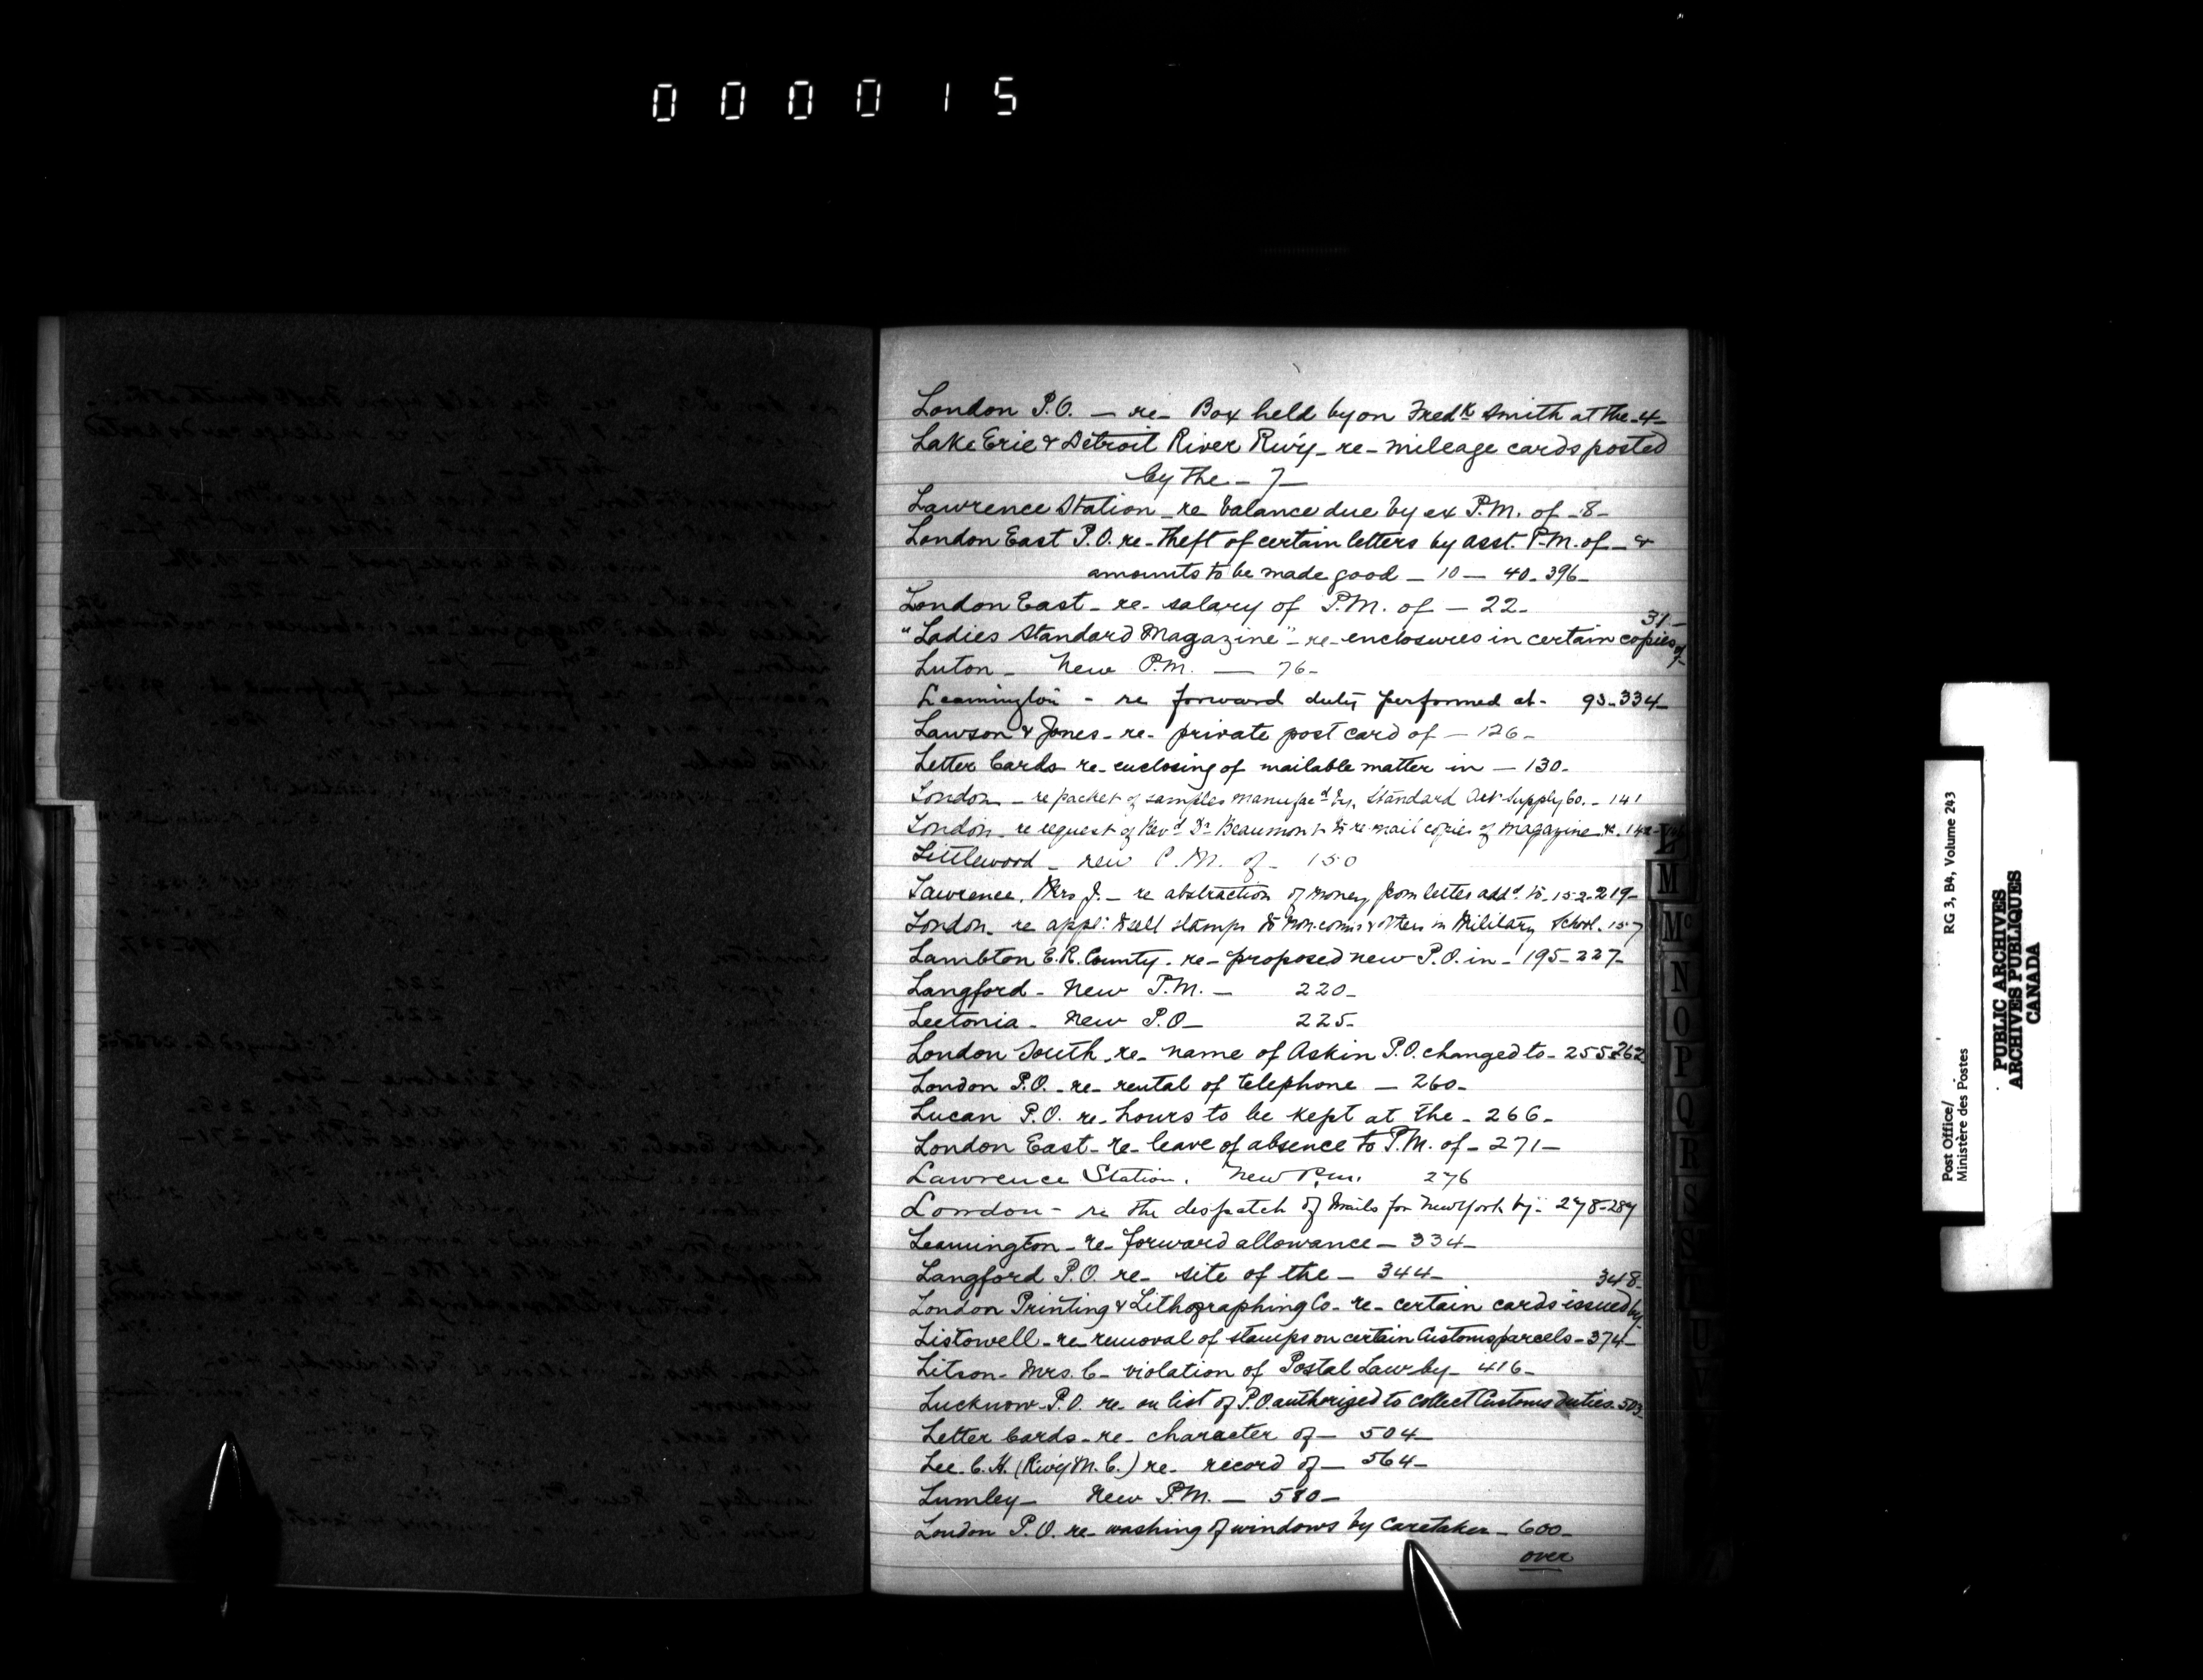 000015
London P.O. — re- Box held by on Fredk Smith at the -4-
Lake Erie & Detroit River Rwy - re - mileage cards posted
by the - 7 -
Lawrence Station - re balance due by ex P.M. of - 8 -
London East P.O. re - theft of certain letters by asst. P.M. of - &
amounts to be made good - 10 - 40 - 396 -
London East - re - salary of P.M. of - 22 -
31 -
"Ladies Standard Magazine" - re - enclosures in certain copies of -
Luton - New P.M. — 76 -
Leamington - re forward duty performed at - 93 - 334 -
Lawson & Jones - re - private post card of - 126 -
Letter Cards re - enclosing of mailable matter in - 130 -
London - re packet of samples manufacd by Standard Art Supply Co. - 141
London - re request of Revd Dr Beaumont to re-mail copies of magazine &. 142 -
Littlewood - new P.M. of - 150
Lawrence, Mrs J. - re abstraction of money from letter addd to - 152 - 219 -
London - re appl: to sell stamps to non-coms & others in Military School - 157
Lambton E.R. County - re - proposed new P.O. in - 195 - 227 -
Langford - New P.M. - 220 -
Leetonia - New P.O - 225 -
London South - re - name of Askin P.O. changed to - 255 & 262
London P.O. - re - rental of telephone - 260 -
Lucan P.O. re - hours to be kept at the - 266 -
London East - re - leave of absence to P.M. of - 271 -
Lawrence Station. New P.M. 276
London - re the despatch of Mails for New York by - 278 - 284
Leamington - re - forward allowance - 334 -
Langford P.O. re - site of the - 344 -
348 -
London Printing & Lithographing Co - re - certain cards issued by -
Listowell - re removal of stamps on certain Customs parcels - 374 -
Litson - Mrs. C - violation of Postal Law by - 416 -
Lucknow P.O. re - on list of P.O authorized to collect Customs Duties - 503 -
Letter Cards - re - character of - 504 -
Lee. C. H. (Rwy M.C.) re - record of - 564 -
Lumley - New P.M. - 580 -
London P.O. re - washing of windows by Caretaker - 600 -
over
L
M
Mc
N
O
P
Q
R
S
U
Post Office/ RG 3, B4, Volume 243
Ministère des Postes
PUBLIC ARCHIVES
ARCHIVES PUBLIQUES
CANADA